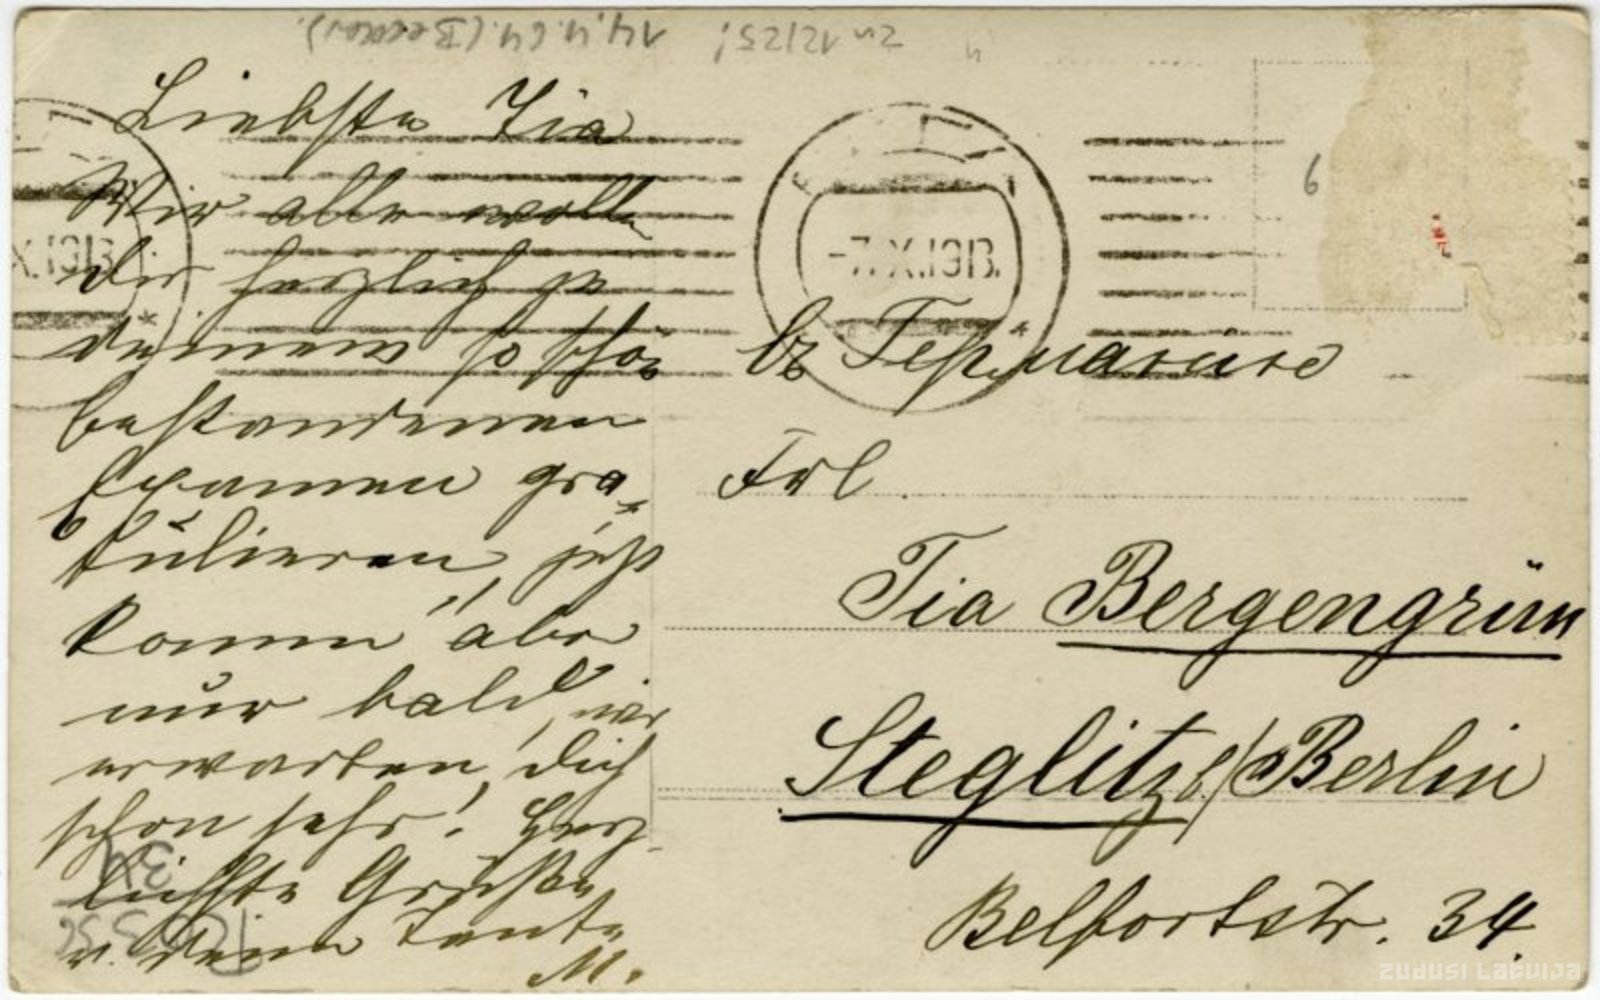 zu 12/25! 14.4.64.
Liebste Tia
Wir alle wollen
dir herzlich zu
deinem so schön
bestandenen
Examen gra-
tulieren, jetzt
komm aber
nur bald, wir
erwarten Dich
schon sehr! Herz-
lichste Grüße
v. deiner Tante
M.
X.1913
-7.X.1913.
6
въ Германію
Frl.
Tia Bergengrün
Steglitz b/Berlin
Belfortstr. 34.
34
ZUDUSI LATVIJA